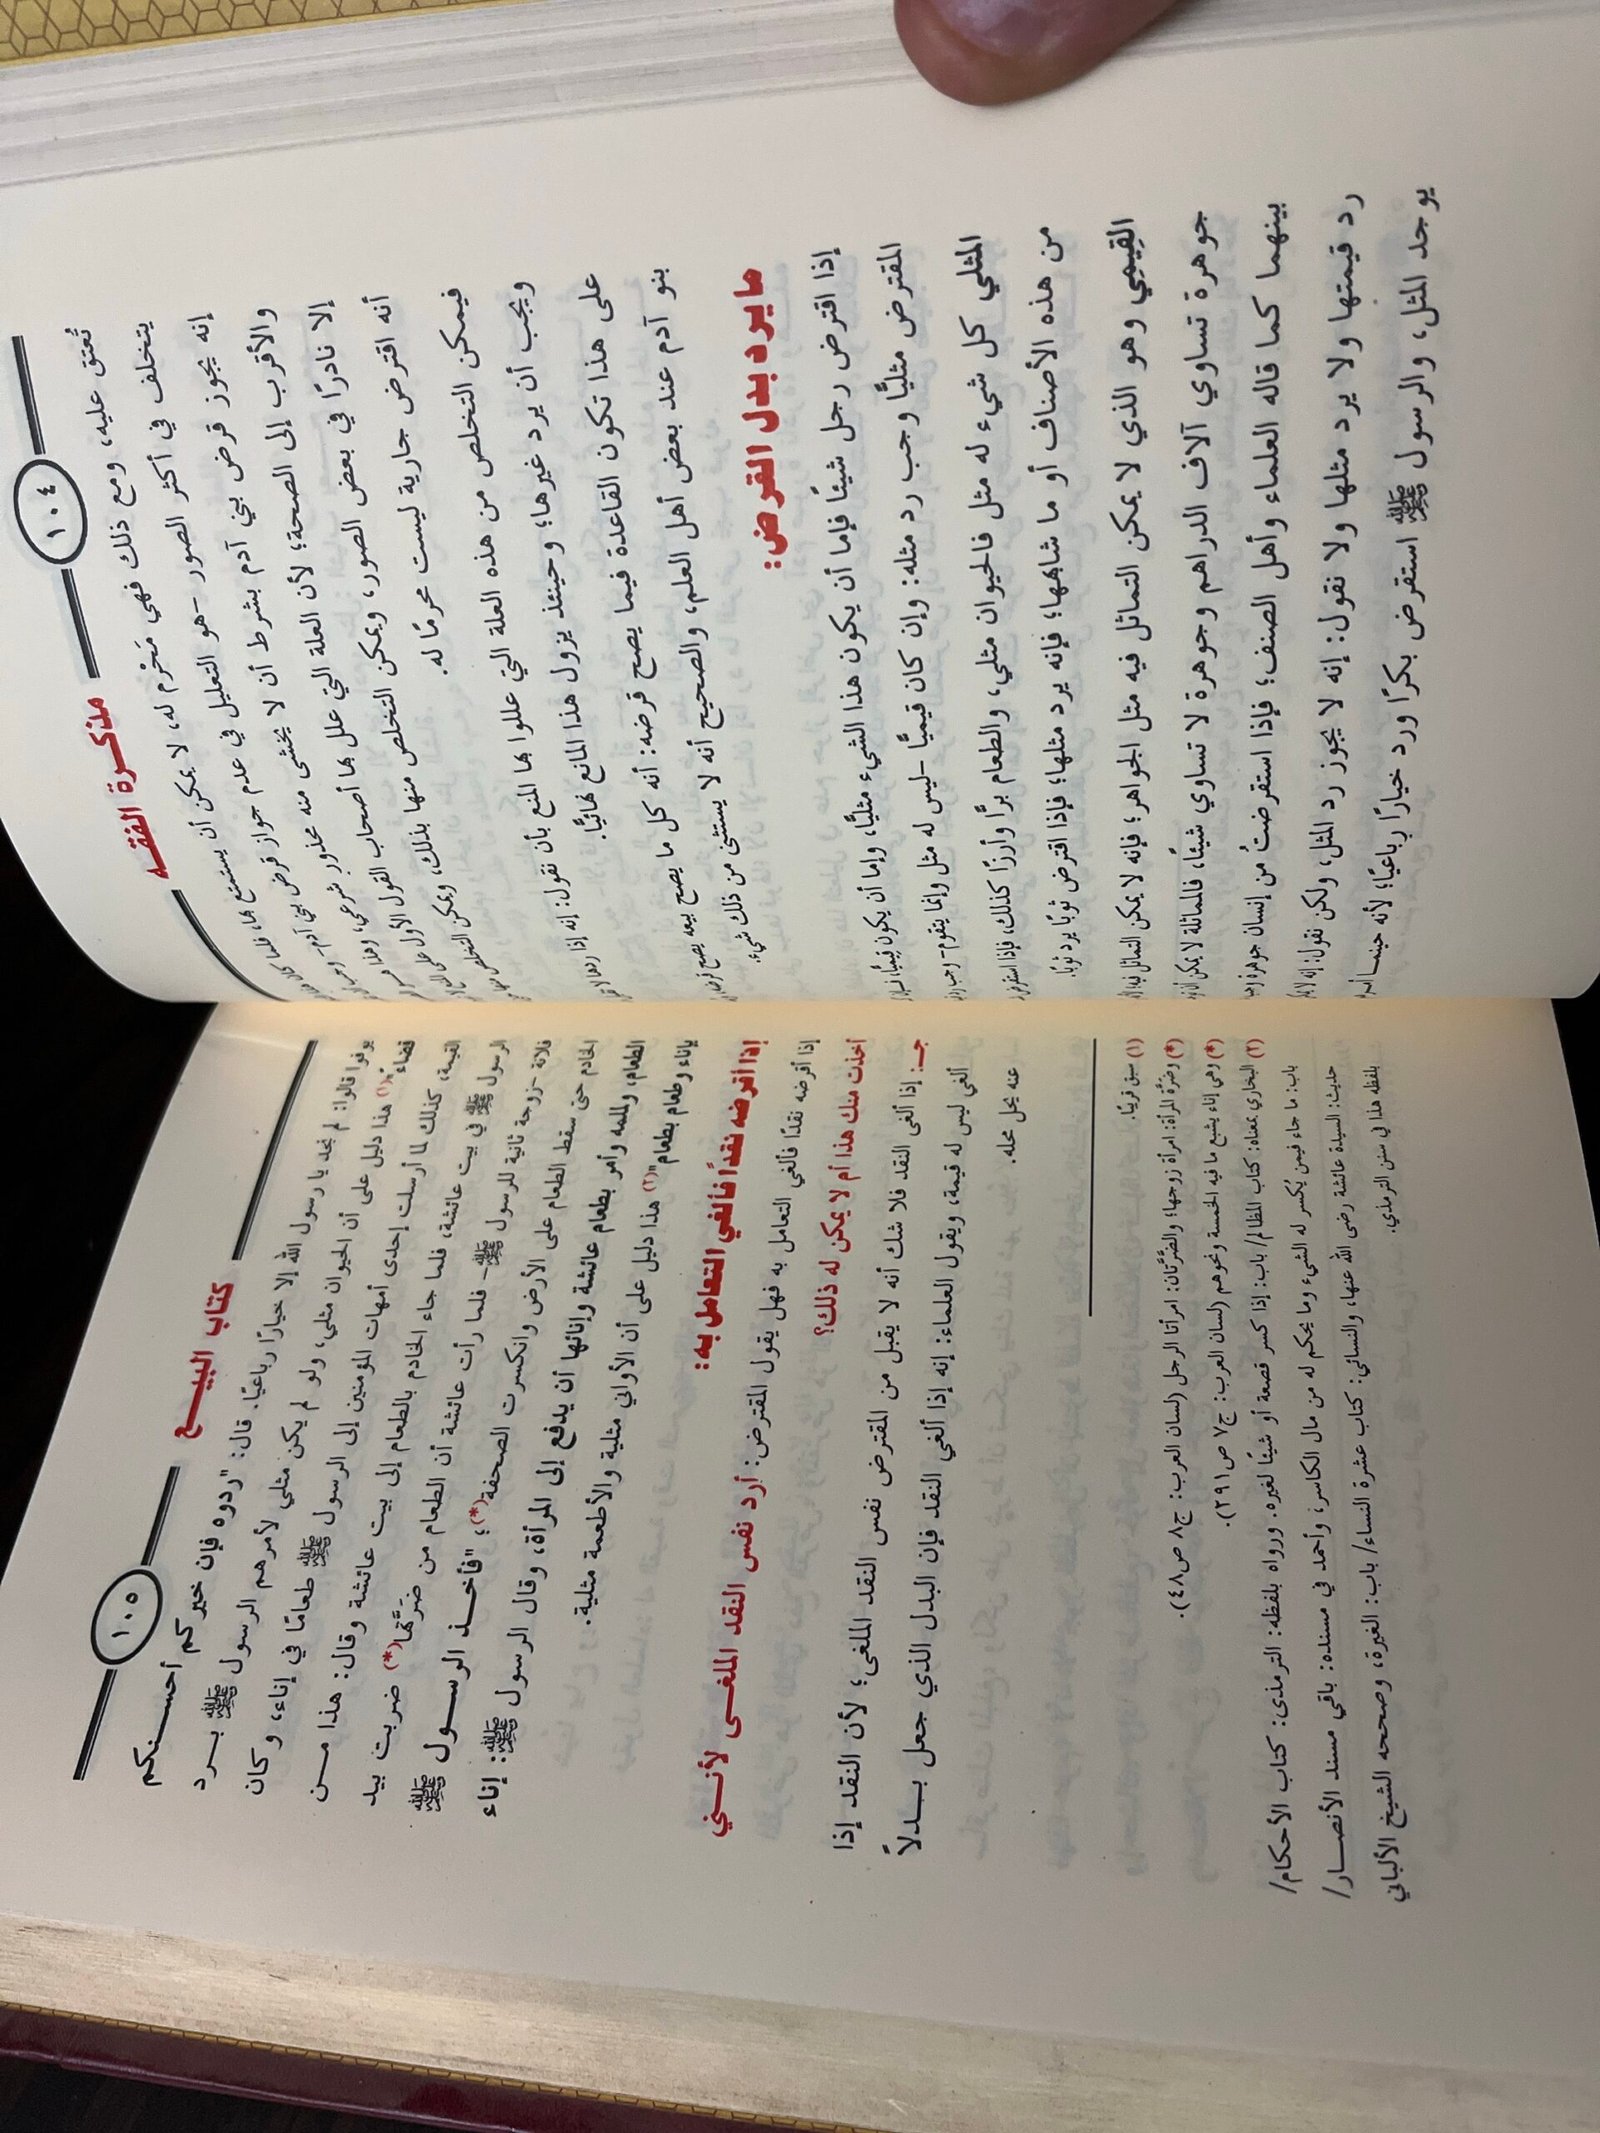 مذكرة الفقه
١٠٤
تُعتق عليه، ومع ذلك فهي مَحْرم له، لا يمكن أن يستمتع بها، فلما كان
يتخلف في أكثر الصور -هو التعليل في عدم جواز قرض
إنه يجوز قرض بني آدم بشرط أن لا يخشى منه محذور شرعي، وهذا هو
والأقرب إلى الصحة؛ لأن العلة التي علل بها أصحاب القول الأول على المنع
إلا نادرًا في بعض الصور، ويمكن التخلص منها بذلك، ويمكن التخلص
أنه اقترض جارية ليست محرمًا له.
فيمكن التخلص من هذه العلة التي عللوا بها المنع بأن نقول: إنه إذا
ويجب أن يرد غيرها؛ وحينئذ يزول هذا المانع نهائيًّا.
على هذا تكون القاعدة فيما يصح قرضه: أنه كل ما يصح بيعه يصح
بنو آدم عند بعض أهل العلم، والصحيح أنه لا يستثنى من ذلك شيء.
ما يرد بدل القرض:
إذا اقترض رجل شيئًا فإما أن يكون هذا الشيء مثليًّا، وإما أن يكون قيميًّا
المقترض مثليًّا وجب رد مثله؛ وإن كان قيميًّا -ليس له مثل وإنما يتقوم- وجب
المثلي كل شيء له مثل فالحيوان مثلي، والطعام برًّا وأرزًا كذلك، فإذا استقرض
من هذه الأصناف أو ما شابهها؛ فإنه يرد مثلها؛ فإذا اقترض ثوبًا يرد ثوبًا.
القِيمِي وهو الذي لا يمكن التماثل فيه مثل الجواهر؛ فإنه لا يمكن التماثل فيها
جوهرة تساوي آلاف الدراهم وجوهرة لا تساوي شيئًا، فالمماثلة لا يمكن أن
بينهما كما قاله العلماء وأهل الصنف؛ فإذا استقرضتُ من إنسان جوهرة
رد قيمتها ولا يرد مثلها ولا نقول: إنه لا يجوز رد المثل، ولكن نقول: إنه لا
يوجد المثل، والرسول ﷺ استقرض بكرًا ورد خيارًا رباعيًّا؛ لأنه حينما
كتاب البيع
١٠٥
يوفوا قالوا: لم نجد يا رسول الله إلا خيارًا رباعيًا. قال: "ردوه فإن خيركم أحسنكم
قضاء"(١) هذا دليل على أن الحيوان مثلي، ولو لم يكن مثلي لأمرهم الرسول ﷺ برد
القيمة، كذلك لما أرسلت إحدى أمهات المؤمنين إلى الرسول ﷺ طعامًا في إناء، وكان
الرسول ﷺ في بيت عائشة، فلما جاء الخادم بالطعام إلى بيت عائشة وقال: هذا من
فلانة -زوجة ثانية للرسول ﷺ- فلما رأت عائشة أن الطعام من ضَرَّتها(*) ضربت بيد
الخادم حتى سقط الطعام على الأرض وانكسرت الصحفة(*)؛ "فأخذ الرسول ﷺ
الطعام، ولملمه وأمر بطعام عائشة وإنائها أن يدفع إلى المرأة، وقال الرسول ﷺ: إناء
بإناء وطعام بطعام"(٢) هذا دليل على أن الأواني مثلية والأطعمة مثلية.
إذا أقرضه نقدًا فألغي التعامل به:
إذا أقرضه نقدًا فألغي التعامل به فهل يقول المقترض: أرد نفس النقد الملغى لأنني
أخذت منك هذا أم لا يمكن له ذلك؟
جـ: إذا ألغى النقد فلا شك أنه لا يقبل من المقترض نفس النقد الملغى؛ لأن النقد إذا
ألغي ليس له قيمة، ويقول العلماء: إنه إذا ألغي النقد فإن البدل الذي جعل بدلاً
عنه يحل محله.
(١) سبق قريبًا.
(*) وضرَّة المرأة: امرأة زوجها؛ والضَّرَّتان: امرأتا الرجل (لسان العرب: ج٨ ص٤٨).
(*) وهي إناء يشبع ما فيه الخمسة ونحوهم (لسان العرب: ج٧ ص٢٩١).
(٢) البخاري بمعناه: كتاب المظالم/ باب: إذا كسر قصعة أو شيئًا لغيره. ورواه بلفظه: الترمذي: كتاب الأحكام/
باب: ما جاء فيمن يُكسر له الشيء وما يحكم له من مال الكاسر، وأحمد في مسنده: باقي مسند الأنصار/
حديث: السيدة عائشة رضي الله عنها، والنسائي: كتاب عشرة النساء/ باب: الغيرة، وصححه الشيخ الألباني
بلفظه هذا في سنن الترمذي.